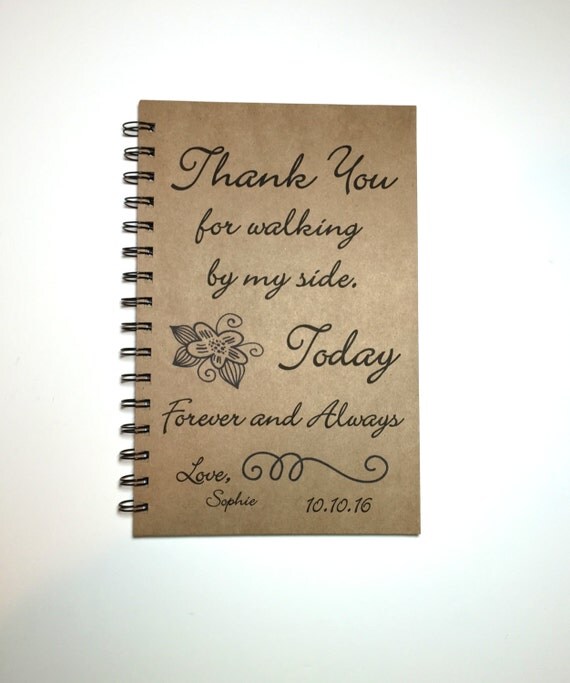 Thank You
for walking
by my side.
Today
Forever and Always
Love,
Sophie 10.10.16